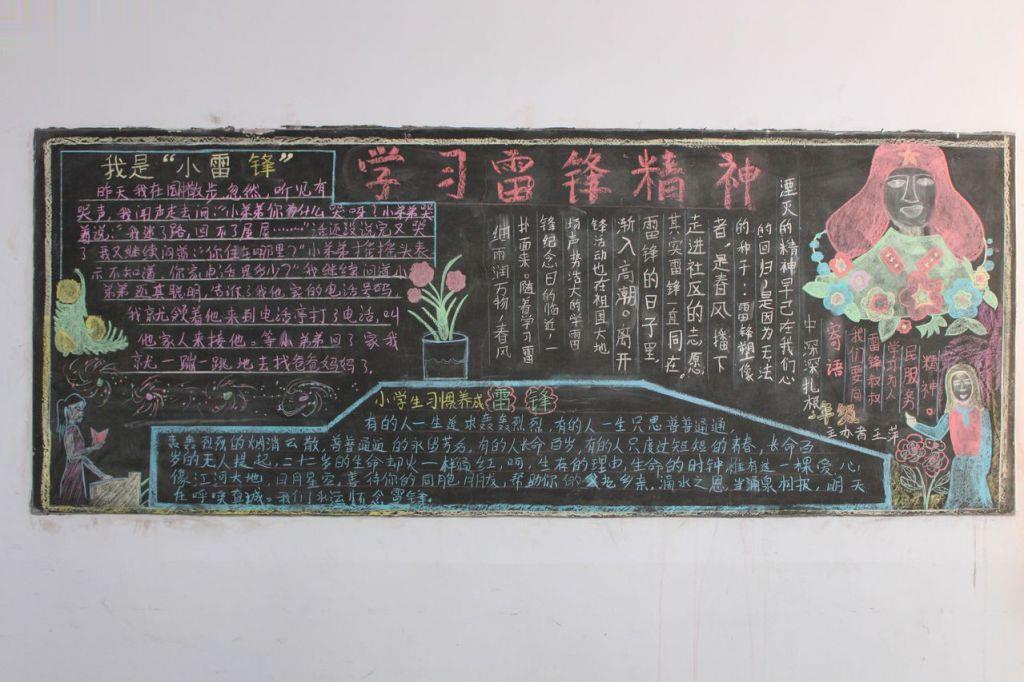 学习雷锋精神
我是“小雷锋”
昨天我在围散步忽然,听见有
哭声,我闻声走去问:“小弟弟你为什么哭呀?小弟弟哭
着说:“我迷了路,回不了家
我又继续问道:“你住在哪里?”小弟弟摇摇头表
示不知道,你家电话是多少?”我继续问道小
弟弟还真聪明,告诉了我他家的电话号码,
我就领着他来到电话亭打了电话,叫
他家人来接他。等小弟弟回了家我
就一蹦一跳地去找爸爸妈妈了。
细雨润万物,春风
扑面来。随着学习雷
锋纪念日的临近,一
场声势浩大的学雷
锋活动也在祖国大地
渐入高潮。离开
雷锋的日子里,
其实雷锋一直同在。
走进社区的志愿
者,是春风播下
的种子;雷锋塑像
的回归,是因为无法
湮灭的精神早已在我们心
中深深扎根。
寄语
我们要向
雷锋叔叔
学习为人
民服务
精神。
主办者王萍
小学生习惯养成 雷锋
有的人一生追求轰轰烈烈,有的人一生只思普普通通,
轰轰烈烈的烟消云散,普普通通的永留芳名,有的人长命百岁,有的人只度过短短的青春,长命百
岁的无人提起,二十二岁的生命却火一样鲜红,啊,生存的理由,生命的时钟,惟有这一棵爱心
像江河大地,日月星空,善待你的同胞朋友,帮助你的父老乡亲,滴水之恩,当涌泉相报,明天
在呼唤真诚。我们永远怀念雷锋。